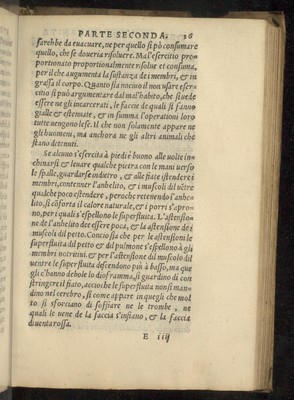 PARTE SECONDA. 36
farebbe da euacuare, ne per quello si pò consumare
quello, che si doueria risoluere. Ma l'esercitio pro-
portionato proportionalmente risolue et consuma,
per il che augumenta la sustanza de i membri, & in
grassa il corpo. Quanto sia nociuo il non usare eser-
citio si può argumentare dal mal'habito, che si uede
essere ne gli incarcerati, le faccie de quali si fanno
gialle & estenuate, & in summa l'operationi loro
tutte uengono lese. Il che non solamente appare ne
gli huomeni, ma anchora ne gli altri animali che
stano detenuti.
Se alcuno s'esercita à piedi è buono alle uolte in-
chinarsi & leuare qualche pietra con le mani uerso
le spalle, guardarse indietro, & alle fiate istendere i
membri, contenner l'anhelito, & i muscoli dil uẽtre
qualche poco estendere, peroche retenendo l'anhe-
lito, si cõforta il calore naturale, & i porri s'apro-
no, per i quali s'espellono le superfluita. L'astensio-
ne de l'anhelito dee essere poca, & la astensione de i
muscoli dil petto. Conciosia che per le astensioni le
superfluita dil petto & dil pulmone s'espellono à gli
membri notritiui, & per l'astensione dil muscolo dil
uentre le superfluita descendono più à basso, ma que
gli c'hanno debole lo diafragma, si guardino di con
stringere il fiato, accioche le superfluita non si man-
dino nel cerebro, si come appare in quegli che mol
to si sforciano di soffiare ne le trombe, ne
quali le uene de la faccia s'infiano, & la faccia
diuenta rossa.
E iiij